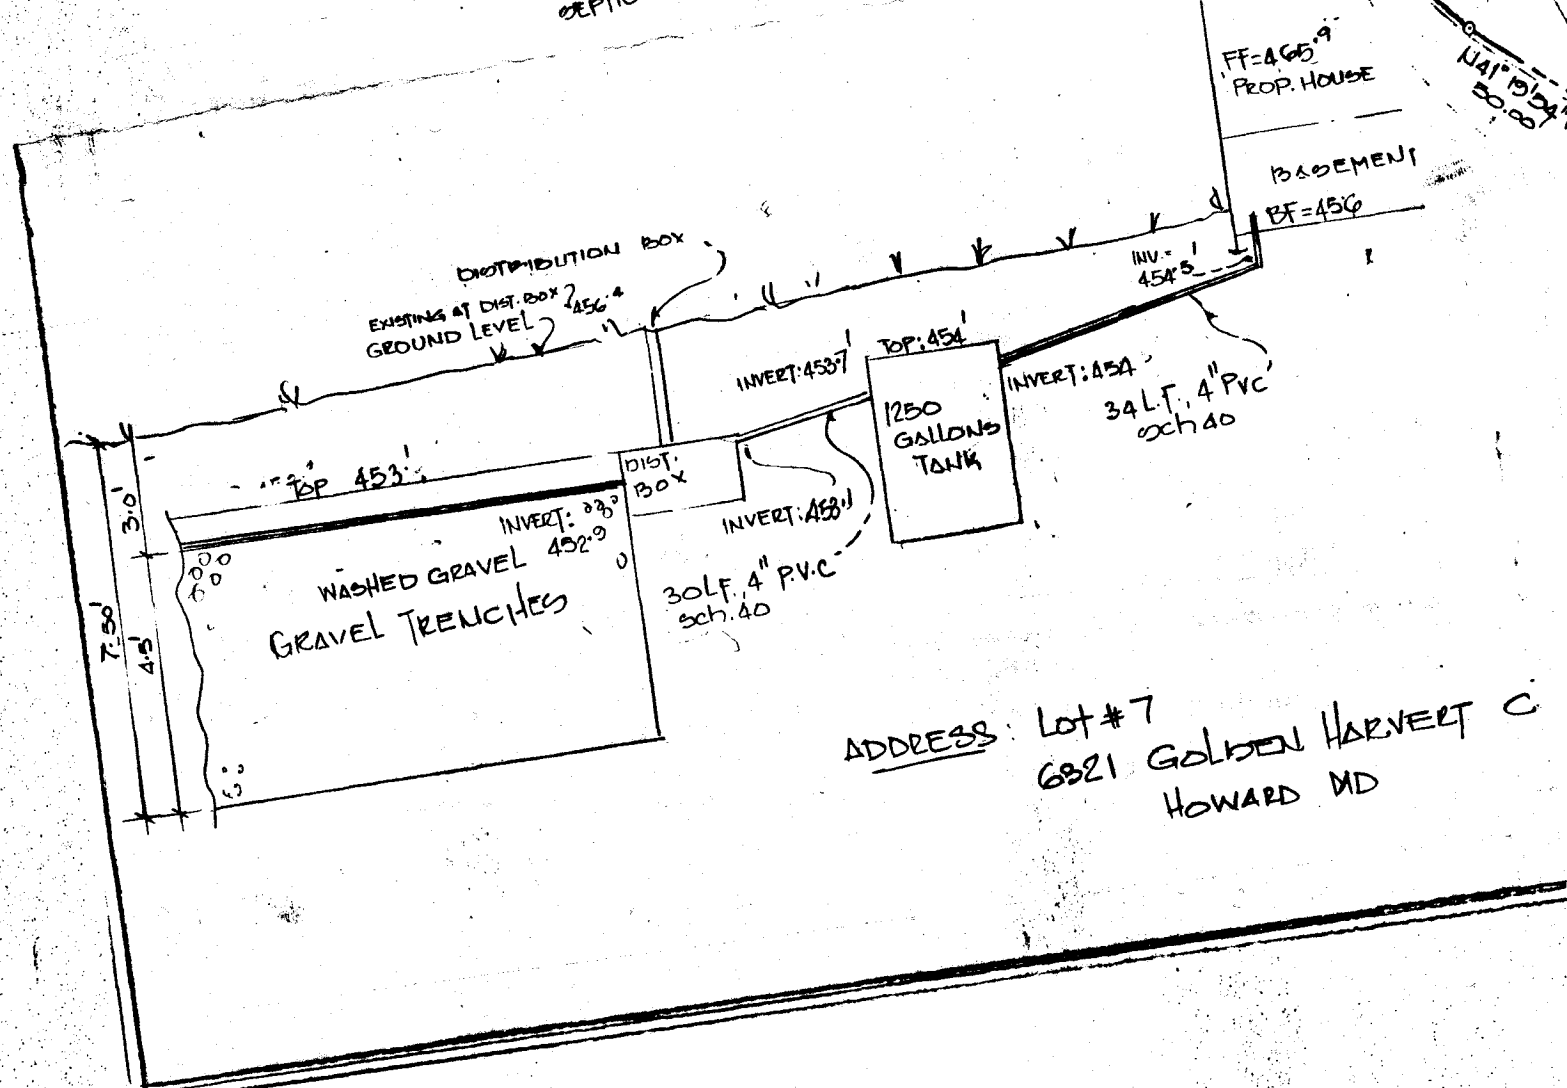 FF=465.9
PROP. HOUSE
N41°19'54"
50.00'
BASEMENT
BF=456
DISTRIBUTION BOX
EXISTING AT DIST. BOX
GROUND LEVEL
456.4
INV.=
454.5'
INVERT:453.7'
TOP:454'
INVERT:454
34 L.F., 4" PVC
sch 40
1250
GALLONS
TANK
TOP 453'
DIST.
BOX
3.0'
INVERT:
452.9
INVERT:453.1
WASHED GRAVEL
GRAVEL TRENCHES
30 L.F., 4" P.V.C
sch. 40
7.50'
4.5'
ADDRESS: Lot #7
6321 GOLDEN HARVERT C
HOWARD MD